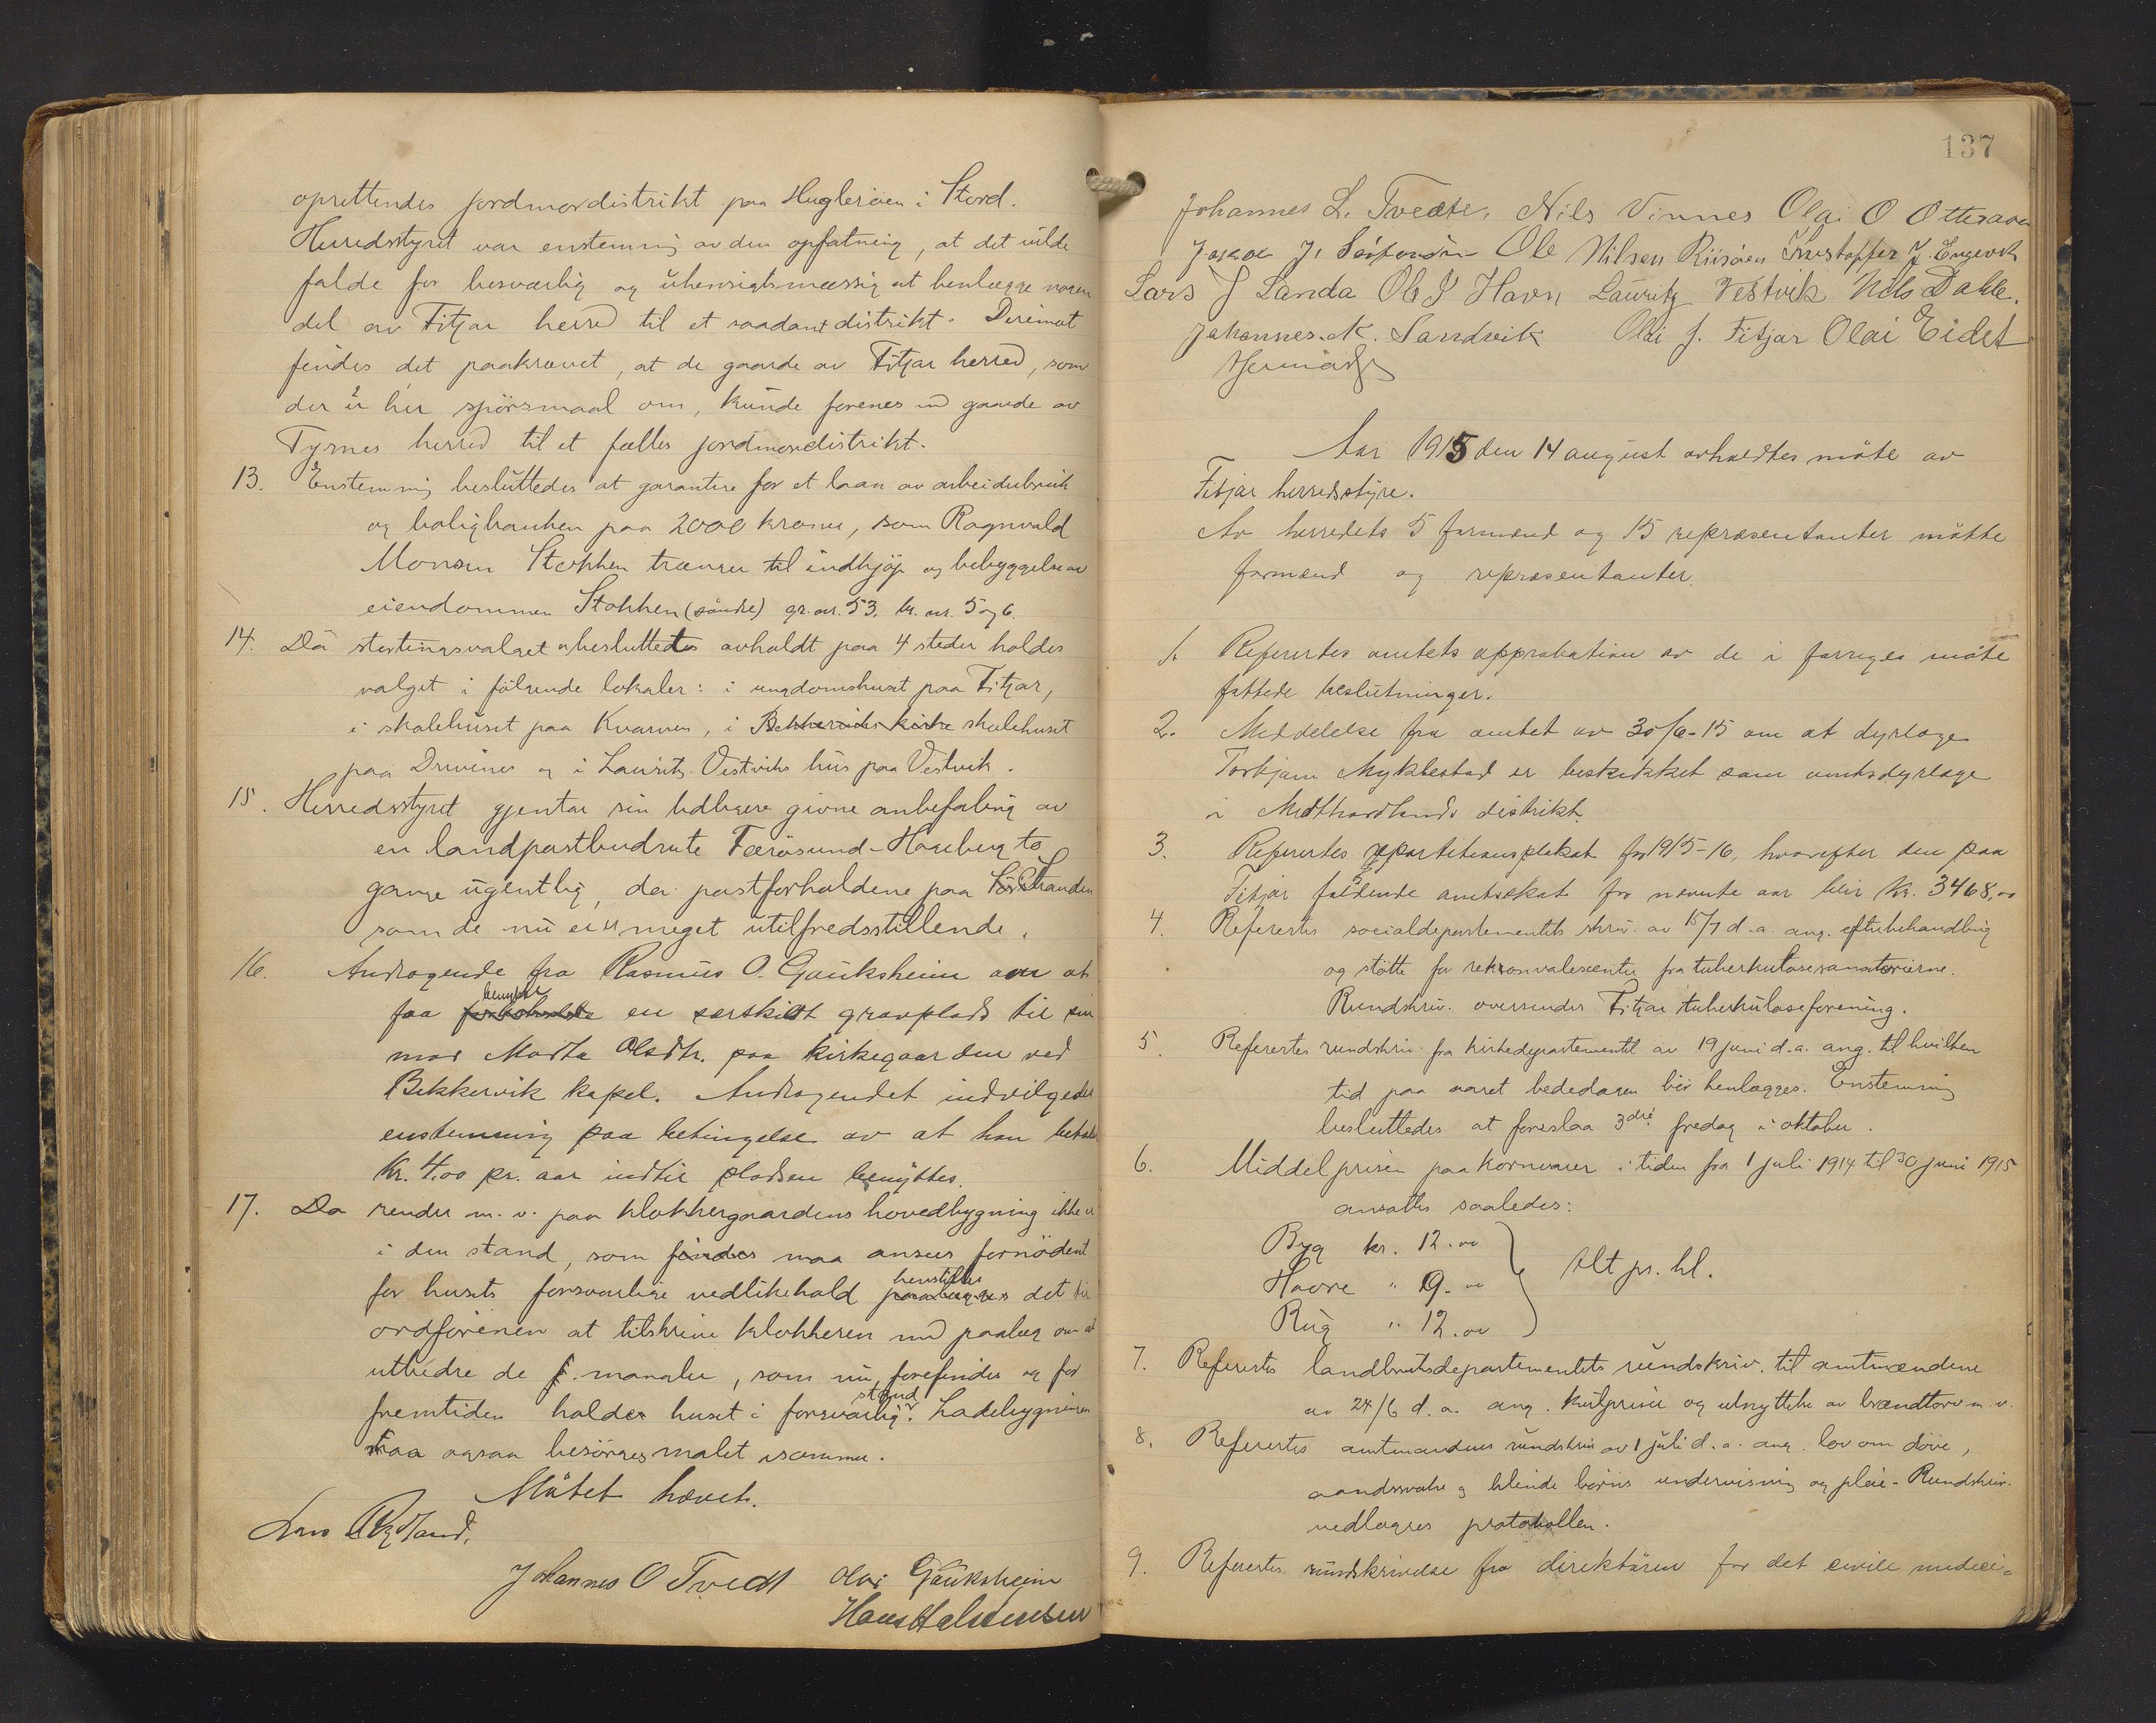 oprettendes jordmordistrikt paa Huglerøen i Stord.
Herredsstyret var enstemmig av den opfatning, at det vilde
falde for besværlig og uhensigtsmæssig at henlægge nogen
del av Fitjar herred til et saadant distrikt. Derimot
findes det paakrævet, at de gaarde av Fitjar herred, som
der er her spörsmaal om, kunde forenes m gaarde av
Tysnes herred til et fælles jordmordistrikt.
13. Enstemmig besluttedes at garantere for et laan av arbeiderbruk
og boligbanken paa 2000 kroner, som Ragnvald
Monsen Stokken trænger til indkjøp og bebyggelse av
eiendommen Stokken (søndre) gr. nr. 53. br. nr. 5 og 6.
14. Da stortingsvalget er besluttedes avholdt paa 4 steder holdes
valget i følgende lokaler: i ungdomshuset paa Fitjar,
i skolehuset paa Kvarven, i Bekkerviks kirke skolehuset
paa Drivenes og i Lauritz Vestviks hus paa Vestvik.
15. Herredsstyret gjentar sin tidligere givne anbefaling av
en landpostbudrute Færøsund-Hageberg to
gange ugentlig, da postforholdene paa Sørstranden
som de nu er er meget utilfredsstillende.
16. Andragende fra Rasmus O. Gauksheim om at
benytte
faa en særskilt gravplads til sin
mor Marta Olsdtr. paa kirkegaarden ved
Bekkervik kapel. Andragendet indvilgedes
enstemmig paa betingelse av at han betaler
Kr. 4.00 pr. aar indtil pladsen benyttes.
17. Da render m. v. paa klokkergaardens hovedbygning ikke er
i den stand, som findes maa ansees fornödent
henstilles
for husets forsvarlige vedlikehold paalægges det til
ordføreren at tilskrive klokkeren med paalæg om at
utbedre de f. mangler, som nu forefindes og for
stand
fremtiden holder huset i forsvarlig. Ladebygningen
maa ogsaa besörges malet isommer.
Mötet hævet.
Lars Rydland,
Johannes O Tvedt Olai Gauksheim
Hans Halvorsen
137
Johannes L. Tvedte, Nils Vinnes Olai O Ottesaven
J. Ole Nilsen Risöen Kristoffer J. Engevik
Lars J Landa Ole J Havn Lauritz Vestvik Nils Dahle.
Johannes. K. Sandvik Olai J. Fitjar Olai Eidet
Aar 1915 den 14 august avholdtes möte av
Fitjar herredsstyre.
Av herredets 5 formænd og 15 repræsentanter mötte
formænd og repræsentanter.
1. Refererter amtets approbation av de i forriges möte
fattede beslutninger.
2. Meddelelse fra amtet av 30/6-15 om at dyrlæge
Torbjørn Myklestad er beskikket som amtsdyrlæge
i Midthordlands distrikt.
3. Refererter repartitionsplakat for 1915-16, hvorefter den paa
Fitjar faldende amtsskat for nævnte aar blir kr. 3468,00
4. Refererter socialdepartementets skriv. av 15/7 d. a. ang. efterbehandling
og støtte for rekonvalescenter fra tuberkulosesanatorierne.
Rundskriv. oversendes Fitjar tuberkuloseforening.
5. Refererter rundskriv fra kirkedepartementet av 19 juni d. a. ang. til hvilken
tid paa aaret bededagen bör henlægges. Enstemmig
besluttedes at foreslaa 3die fredag i oktober.
6. Middelprisen paa kornvarer i tiden fra 1 juli 1914 til 30 juni 1915
ansattes saaledes:
Byg kr. 12.00
Havre " 9.00 Alt pr. hl.
Rug " 12.00
7. Refererter landbruksdepartementets rundskriv. til amtmændene
av 24/6 d. a. ang. kulpriser og utnyttelse av brændtorv m. v.
8. Refererter amtmandens rundskriv av 1 juli d. a. ang. lov om döve,
aandssvake og blinde børns undervisning og pleie. Rundskriv.
vedlægges protokollen.
9. Refererter rundskrivelse fra direktören for det civile medici=